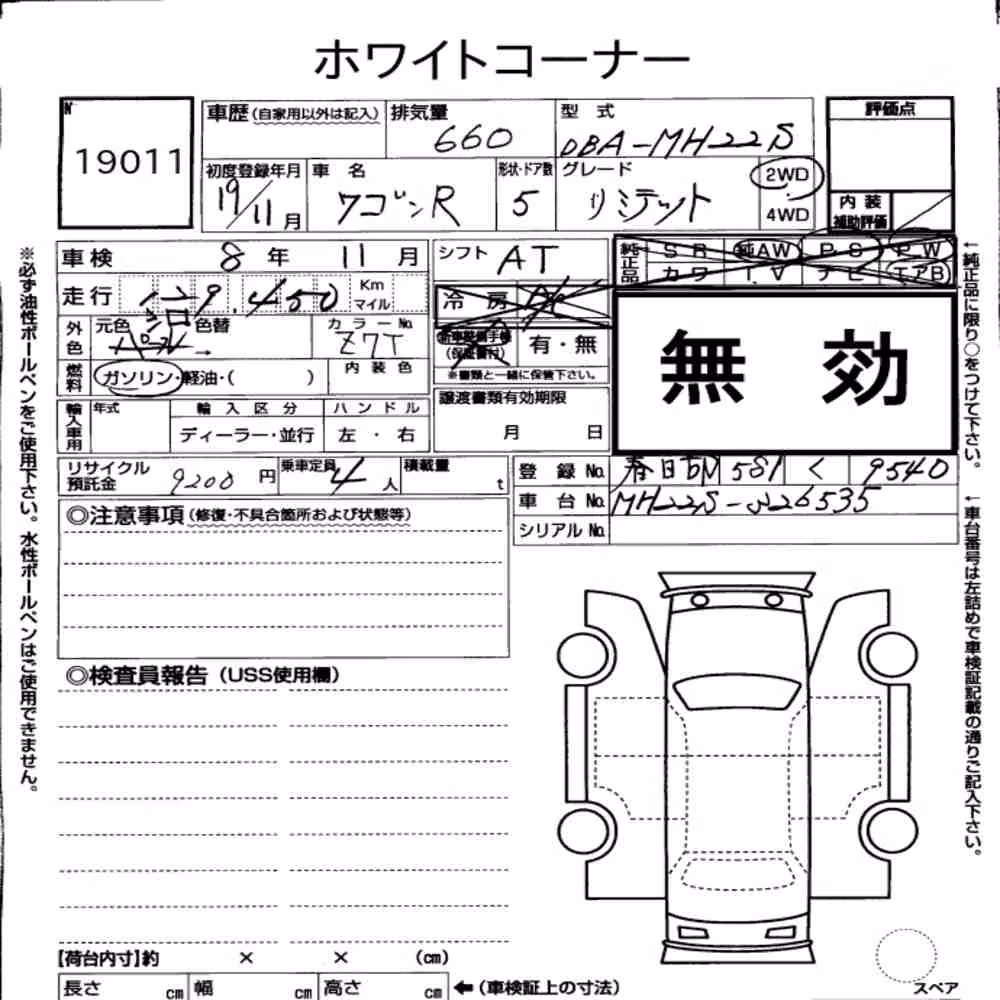 ホワイトコーナー
№
19011
車歴(自家用以外は記入)
排気量
660
型式
DBA-MH22S
評価点
初度登録年月
19/11月
車名
ワゴンR
形状・ドア数
5
グレード
リミテット
2WD
4WD
内装
補助評価
車検 8年 11月
シフト AT
純正品
SR 純AW PS PW
カワ TV ナビ エアB
走行 129,450 Km マイル
冷房
外色
元色
色替
カラーNo.
Z7T
新車整備手帳
(保証書付)
有・無
※書類と一緒に保管下さい。
無効
燃料
ガソリン・軽油・( )
内装色
輸入車用
年式
輸入区分
ディーラー・並行
ハンドル
左・右
譲渡書類有効期限
月 日
リサイクル預託金
9200円
乗車定員
4人
積載量
t
登録No. 春日部 581 く 9540
車台No. MH22S-326535
シリアルNo.
◎注意事項(修復・不具合箇所および状態等)
◎検査員報告(USS使用欄)
【荷台内寸】約 × × (cm)
長さ cm 幅 cm 高さ cm ←(車検証上の寸法)
スペア
※必ず油性ボールペンをご使用下さい。水性ボールペンはご使用できません。
←純正品に限り○をつけて下さい。
←車台番号は左詰めで車検証記載の通りご記入下さい。